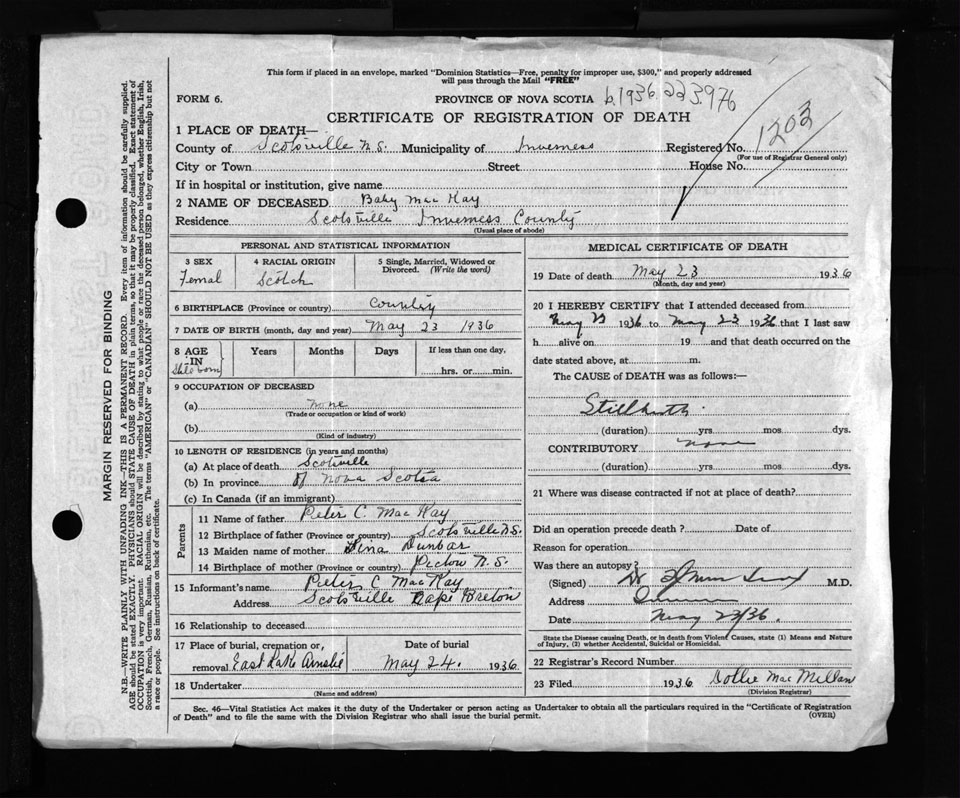 This form if placed in an envelope, marked "Dominion Statistics—Free, penalty for improper use, $300," and properly addressed
will pass through the Mail "FREE"
FORM 6.
PROVINCE OF NOVA SCOTIA b.1936.223976
CERTIFICATE OF REGISTRATION OF DEATH
1 PLACE OF DEATH—
County of Scotsville N.S. Municipality of Inverness Registered No. 1203
(For use of Registrar General only)
City or Town Street House No.
If in hospital or institution, give name
2 NAME OF DECEASED Baby Mac Kay
Residence Scotsville Inverness County
(Usual place of abode)
PERSONAL AND STATISTICAL INFORMATION
3 SEX
Femal
4 RACIAL ORIGIN
Scotch
5 Single, Married, Widowed or
Divorced. (Write the word)
6 BIRTHPLACE (Province or country) Country
7 DATE OF BIRTH (month, day and year) May 23 1936
8 AGE
IN
Stilo born
Years
Months
Days
If less than one day,
hrs. or min.
9 OCCUPATION OF DECEASED
(a) none
(Trade or occupation or kind of work)
(b)
(Kind of industry)
10 LENGTH OF RESIDENCE (in years and months)
(a) At place of death Scotsville
(b) In province of Nova Scotia
(c) In Canada (if an immigrant)
Parents
11 Name of father Peter C Mac Kay
12 Birthplace of father (Province or country) Scotsville N.S.
13 Maiden name of mother Dunbar
14 Birthplace of mother (Province or country) Pictou N.S.
15 Informant's name Peter C Mac Kay
Address Scotsville Cape Breton
16 Relationship to deceased
17 Place of burial, cremation, or
removal East Lake Ainslie
Date of burial
May 24. 1936
18 Undertaker
(Name and address)
MEDICAL CERTIFICATE OF DEATH
19 Date of death May 23 1936
(Month, day and year)
20 I HEREBY CERTIFY that I attended deceased from
May 23 1936 to May 23 1936 that I last saw
h alive on 19 and that death occurred on the
date stated above, at m.
The CAUSE of DEATH was as follows:—
Stillbirth.
(duration) yrs. mos. dys.
CONTRIBUTORY none
(duration) yrs. mos. dys.
21 Where was disease contracted if not at place of death?
Did an operation precede death? Date of
Reason for operation
Was there an autopsy?
(Signed) Dr M.D.
Address
Date May 23/36.
State the Disease causing Death, or in death from Violent Causes, state (1) Means and Nature
of Injury, (2) whether Accidental, Suicidal or Homicidal.
22 Registrar's Record Number
23 Filed 1936 Dollie Mac Millan
(Division Registrar)
Sec. 46—Vital Statistics Act makes it the duty of the Undertaker or person acting as Undertaker to obtain all the particulars required in the "Certificate of Registration
of Death" and to file the same with the Division Registrar who shall issue the burial permit.
(OVER)
MARGIN RESERVED FOR BINDING
N.B.—WRITE PLAINLY WITH UNFADING INK—THIS IS A PERMANENT RECORD. Every item of information should be carefully supplied.
AGE should be stated EXACTLY. PHYSICIANS should STATE CAUSE OF DEATH in plain terms, so that it may be properly classified. Exact statement of
OCCUPATION is very important. RACIAL ORIGIN will be described by stating to what people or race the deceased person belonged, whether English, Irish,
Scottish, French, German, Russian, Ruthenian, etc. The terms "AMERICAN" or "CANADIAN" SHOULD NOT BE USED as they express citizenship but not
a race or people. See instructions on back of certificate.